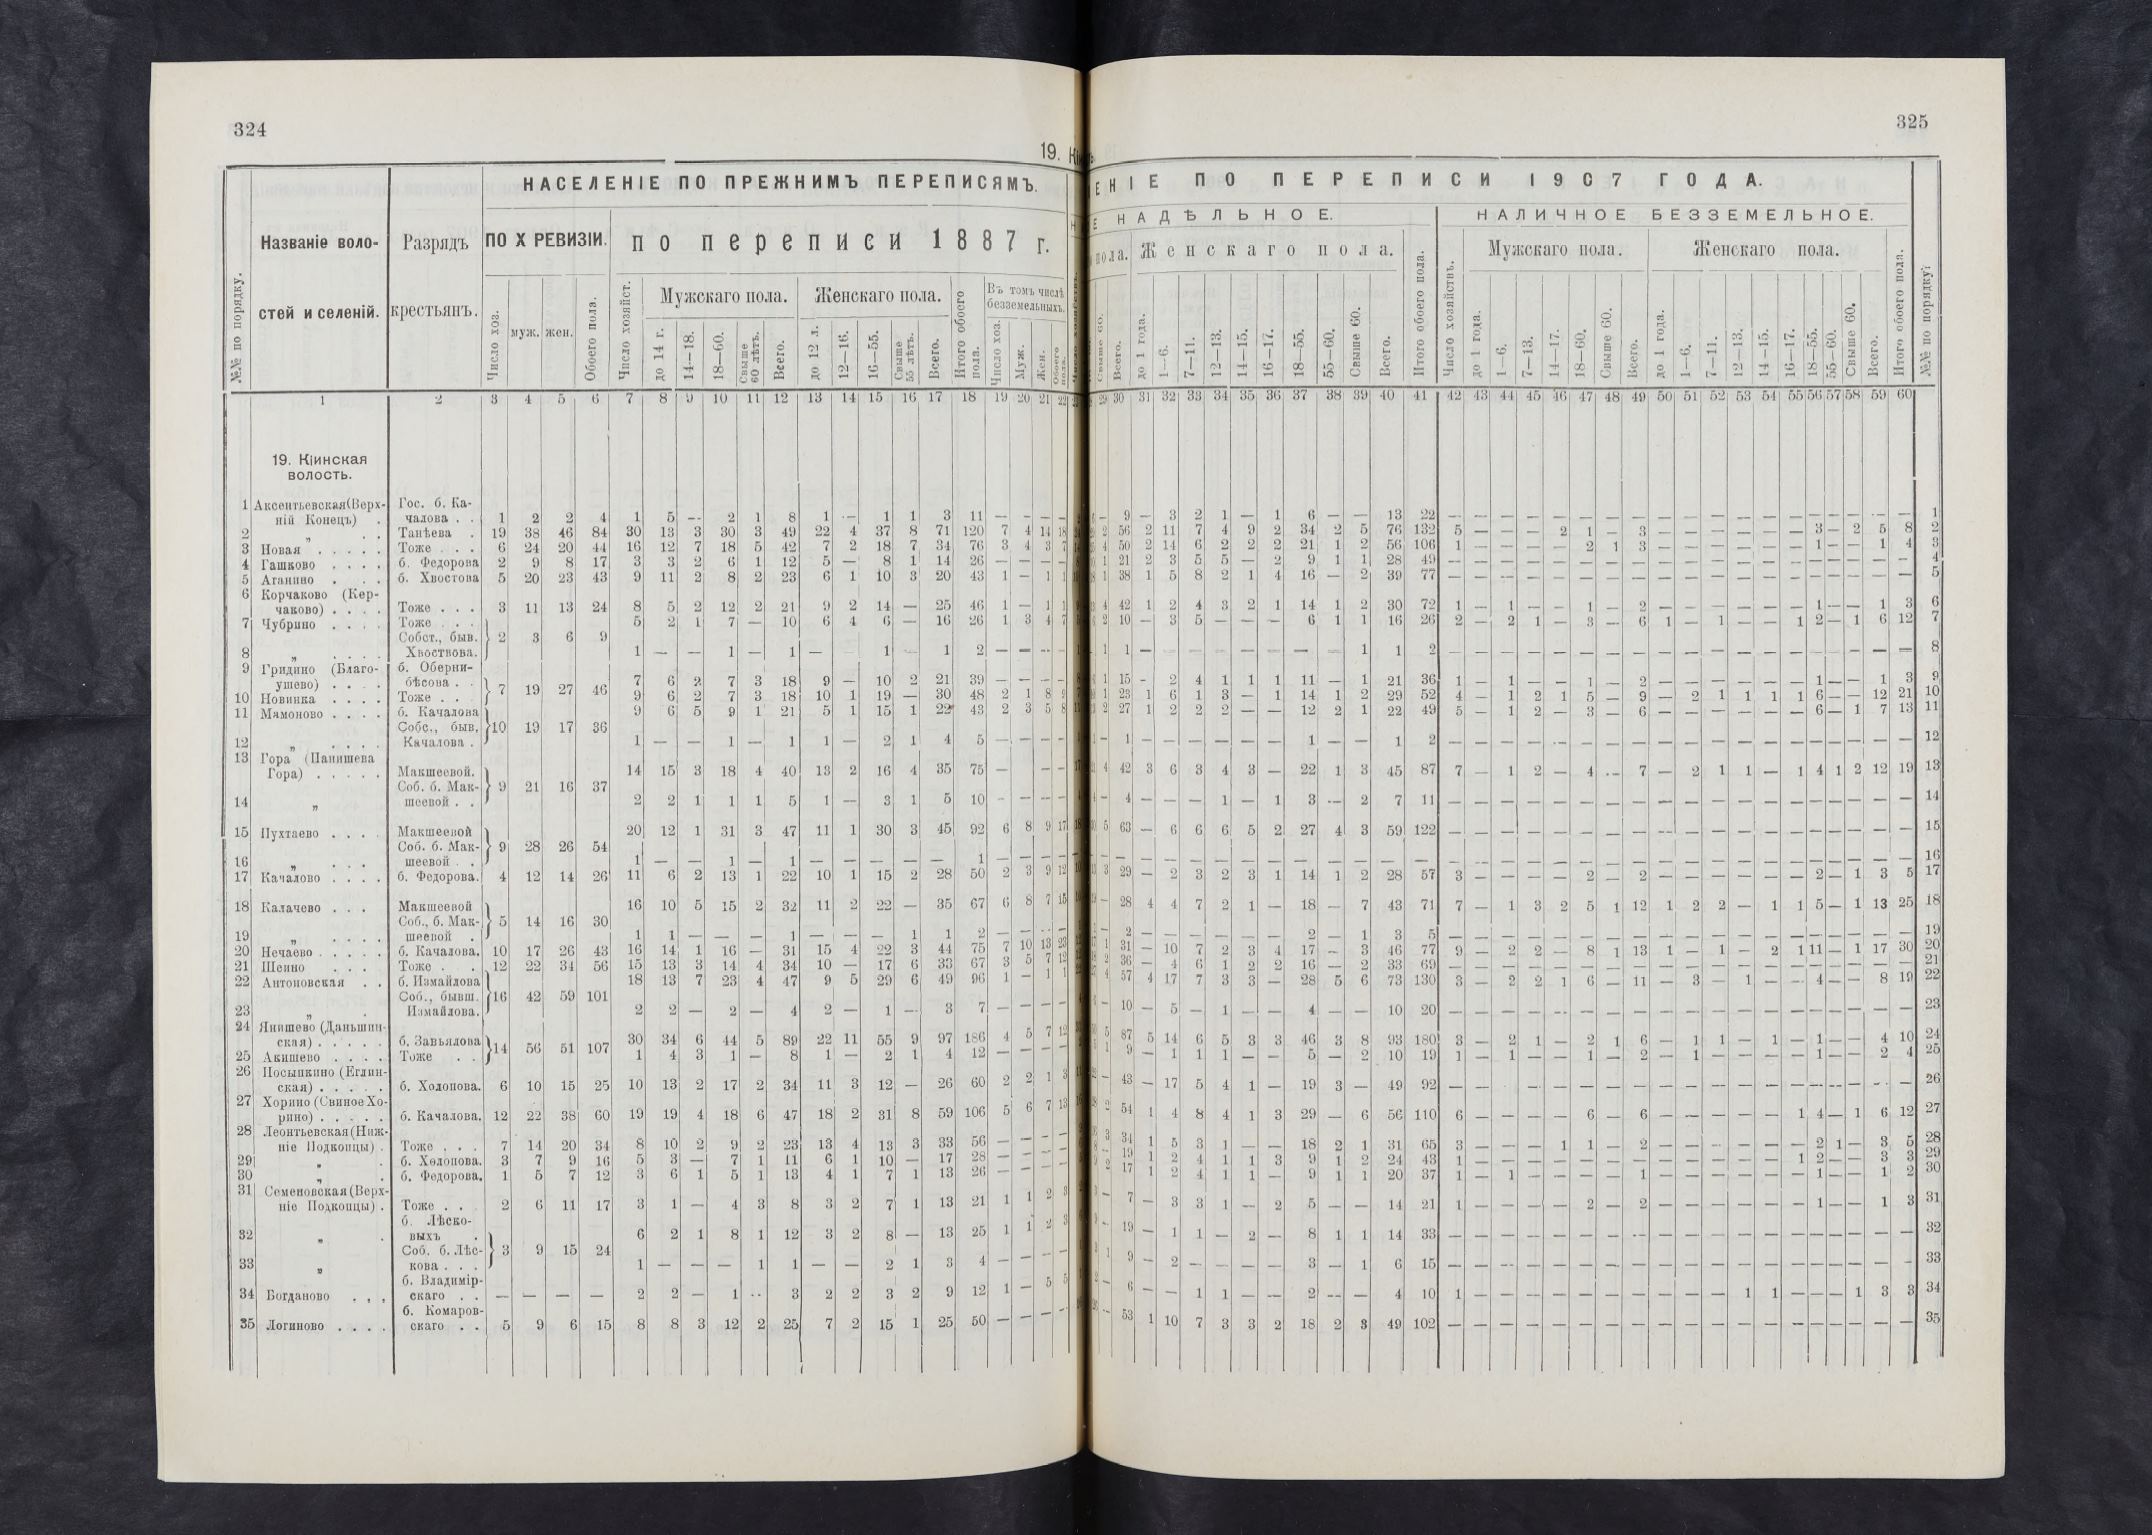 324
325
19. Кі
НАСЕЛЕНІЕ ПО ПРЕЖНИМЪ ПЕРЕПИСЯМЪ.
ЕНІЕ ПО ПЕРЕПИСИ 1907 ГОДА.
НАДѢЛЬНОЕ.
НАЛИЧНОЕ БЕЗЗЕМЕЛЬНОЕ.
№№ по порядку.
Названіе воло-
стей и селеній.
Разрядъ
крестьянъ.
ПО X РЕВИЗІИ.
по переписи 1887 г.
Число хоз.
муж. жен.
Обоего пола.
Число хозяйст.
Мужскаго пола.
до 14 г.
14—18.
18—60.
Свыше 60 лѣтъ.
Всего.
Женскаго пола.
до 12 л.
12—16.
16—55.
Свыше 55 лѣтъ.
Всего.
Итого обоего пола.
Въ томъ числѣ
безземельныхъ.
Число хоз.
Муж.
Жен.
Обоего пола.
пола.
Свыше 60.
Всего.
Женскаго пола.
до 1 года.
1—6.
7—11.
12—13.
14—15.
16—17.
18—55.
55—60.
Свыше 60.
Всего.
Итого обоего пола.
Число хозяйствъ.
Мужскаго пола.
до 1 года.
1—6.
7—13.
14—17.
18—60.
Свыше 60.
Всего.
Женскаго пола.
до 1 года.
1—6.
7—11.
12—13.
14—15.
16—17.
18—55.
55—60.
Свыше 60.
Всего.
Итого обоего пола.
№№ по порядку.
1 2 3 4 5 6 7 8 9 10 11 12 13 14 15 16 17 18 19 20 21 22
29 30 31 32 33 34 35 36 37 38 39 40 41 42 43 44 45 46 47 48 49 50 51 52 53 54 55 56 57 58 59 60
19. Кіинская
волость.
1 Аксентьевская (Верх- Гос. б. Ка-
ній Конецъ) . чалова . . 1 2 2 4 1 5 — 2 1 8 1 — 1 1 3 11
2 „ . . Танѣева . 19 38 46 84 30 13 3 30 3 49 22 4 37 8 71 120 7 4 14 18
3 Новая . . . . . Тоже . . . 6 24 20 44 16 12 7 18 5 42 7 2 18 7 34 76 3 4 3 7
4 Гашково . . . . б. Федорова 2 9 8 17 3 3 2 6 1 12 5 — 8 1 14 26 — — — —
5 Аганино . . . . б. Хвостова 5 20 23 43 9 11 2 8 2 23 6 1 10 3 20 43 1 — 1 1
6 Корчаково (Кер-
чаково) . . . . Тоже . . . 3 11 13 24 8 5 2 12 2 21 9 2 14 — 25 46 1 — 1 1
7 Чубрино . . . . Тоже . . . 5 2 1 7 — 10 6 4 6 — 16 26 1 3 4 7
Собст., быв. 2 3 6 9
8 „ . . . . Хвосткова. 1 — — 1 — 1 — 1 — 1 2 — — — —
9 Гридино (Благо- б. Оберни-
ушево) . . . . бѣсова . . 7 6 2 7 3 18 9 — 10 2 21 39 — — — —
7 19 27 46
10 Новинка . . . . Тоже . . 9 6 2 7 3 18 10 1 19 — 30 48 2 1 8 9
11 Мямоново . . . . б. Качалова 9 6 5 9 1 21 5 1 15 1 22 43 2 3 5 8
Собс., быв. 10 19 17 36
12 „ . . . . Качалова . 1 — — 1 — 1 1 — 2 1 4 5 — — — —
13 Гора (Панишева
Гора) . . . . . Макшеевой. 14 15 3 18 4 40 13 2 16 4 35 75 — — — —
Соб. б. Мак- 9 21 16 37
14 „ шеевой . . 2 2 1 1 1 5 1 — 3 1 5 10 — — — —
15 Пухтаево . . . . Макшеевой 20 12 1 31 3 47 11 1 30 3 45 92 6 8 9 17
Соб. б. Мак- 9 28 26 54
16 „ . . . шеевой . . 1 — — 1 — 1 — — — — — 1 — — — —
17 Качалово . . . . б. Федорова. 4 12 14 26 11 6 2 13 1 22 10 1 15 2 28 50 2 3 9 12
18 Калачево . . . Макшеевой 16 10 5 15 2 32 11 2 22 — 35 67 6 8 7 15
Соб., б. Мак- 5 14 16 30
19 „ . . . . шеевой . 1 1 — — — 1 — — — 1 1 2 — — — —
20 Нечаево . . . . . б. Качалова. 10 17 26 43 16 14 1 16 — 31 15 4 22 3 44 75 7 10 13 23
21 Шеино . . . Тоже . . 12 22 34 56 15 13 3 14 4 34 10 — 17 6 33 67 3 5 7 12
22 Антоновская . . б. Измайлова 18 13 7 23 4 47 9 5 29 6 49 96 1 — 1 1
Соб., бывш. 16 42 59 101
23 „ . Измайлова. 2 2 — 2 — 4 2 — 1 — 3 7 — — — —
24 Янишево (Даньшин-
ская) . . . . . б. Завьялова 30 34 6 44 5 89 22 11 55 9 97 186 4 5 7 12
14 56 51 107
25 Акишево . . . . Тоже . . 1 4 3 1 — 8 1 — 2 1 4 12 — — — —
26 Посынкино (Еглин-
ская) . . . . . б. Холопова. 6 10 15 25 10 13 2 17 2 34 11 3 12 — 26 60 2 2 1 3
27 Хорино (Свиное Хо-
рино) . . . . . б. Качалова. 12 22 38 60 19 19 4 18 6 47 18 2 31 8 59 106 5 6 7 13
28 Леонтьевская (Ниж-
ніе Подкопцы) . Тоже . . . 7 14 20 34 8 10 2 9 2 23 13 4 13 3 33 56 — — — —
29 „ . б. Холопова. 3 7 9 16 5 3 — 7 1 11 6 1 10 — 17 28 — — — —
30 „ . б. Федорова. 1 5 7 12 3 6 1 5 1 13 4 1 7 1 13 26 — — — —
31 Семеновская (Верх-
ніе Подкопцы) . Тоже . . 2 6 11 17 3 1 — 4 3 8 3 2 7 1 13 21 1 1 2 3
б. Лѣско-
32 „ . выхъ . 6 2 1 8 1 12 3 2 8 — 13 25 1 1 2 3
Соб. б. Лѣс- 3 9 15 24
33 „ кова . . . 1 — — — 1 1 — — 2 1 3 4 — — — —
б. Владимір-
34 Богданово . . . скаго . . — — — — 2 2 — 1 — 3 2 2 3 2 9 12 1 — 5 5
б. Комаров-
35 Логиново . . . . скаго . . 5 9 6 15 8 8 3 12 2 25 7 2 15 1 25 50 — — — —
— 9 — 3 2 1 — 1 6 — — 13 22 — — — — — — — — — — — — — — — — — — — 1
2 56 2 11 7 4 9 2 34 2 5 76 132 5 — — — 2 1 — 3 — — — — — — 3 — 2 5 8 2
4 50 2 14 6 2 2 2 21 1 2 56 106 1 — — — — 2 1 3 — — — — — — 1 — — 1 4 3
1 21 2 3 5 5 — 2 9 1 1 28 49 — — — — — — — — — — — — — — — — — — — 4
1 38 1 5 8 2 1 4 16 — 2 39 77 — — — — — — — — — — — — — — — — — — — 5
4 42 1 2 4 3 2 1 14 1 2 30 72 1 — 1 — — 1 — 2 — — — — — — 1 — — 1 3 6
2 10 — 3 5 — — — 6 1 1 16 26 2 — 2 1 — 3 — 6 1 — 1 — — 1 2 — 1 6 12 7
1 1 — — — — — — — — 1 1 2 — — — — — — — — — — — — — — — — — — — 8
1 15 - 2 4 1 1 1 11 — 1 21 36 1 — 1 — — 1 — 2 — — — — — — 1 — — 1 3 9
1 23 1 6 1 3 — 1 14 1 2 29 52 4 — 1 2 1 5 — 9 — 2 1 1 1 1 6 — — 12 21 10
2 27 1 2 2 2 — — 12 2 1 22 49 5 — 1 2 — 3 — 6 — — — — — — 6 — 1 7 13 11
— 1 — — — — — — 1 — — 1 2 — — — — — — — — — — — — — — — — — — — 12
4 42 3 6 3 4 3 — 22 1 3 45 87 7 — 1 2 — 4 — 7 — 2 1 1 — 1 4 1 2 12 19 13
— 4 — — — 1 — 1 3 — 2 7 11 — — — — — — — — — — — — — — — — — — — 14
5 63 — 6 6 6 5 2 27 4 3 59 122 — — — — — — — — — — — — — — — — — — — 15
— — — — — — — — — — — — — — — — — — — — — — — — — — — — — — — — 16
3 29 — 2 3 2 3 1 14 1 2 28 57 3 — — — — 2 — 2 — — — — — — 2 — 1 3 5 17
— 28 4 4 7 2 1 — 18 — 7 43 71 7 — 1 3 2 5 1 12 1 2 2 — 1 1 5 — 1 13 25 18
— 2 — — — — — — 2 — 1 3 5 — — — — — — — — — — — — — — — — — — — 19
1 31 — 10 7 2 3 4 17 — 3 46 77 9 — 2 2 — 8 1 13 1 — 1 — 2 1 11 — 1 17 30 20
2 36 — 4 6 1 2 2 16 — 2 33 69 — — — — — — — — — — — — — — — — — — — 21
4 57 4 17 7 3 3 — 28 5 6 73 130 3 — 2 2 1 6 — 11 — 3 — 1 — — 4 — — 8 19 22
— 10 — 5 — 1 — — 4 — — 10 20 — — — — — — — — — — — — — — — — — — — 23
5 87 5 14 6 5 3 3 46 3 8 93 180 3 — 2 1 — 2 1 6 — 1 1 — 1 — 1 — — 4 10 24
1 9 — 1 1 1 — — 5 — 2 10 19 1 — 1 — — 1 — 2 — 1 — — — — 1 — — 2 4 25
— 43 — 17 5 4 1 — 19 3 — 49 92 — — — — — — — — — — — — — — — — — — — 26
2 54 1 4 8 4 1 3 29 — 6 56 110 6 — — — — 6 — 6 — — — — — 1 4 — 1 6 12 27
3 34 1 5 3 1 — — 18 2 1 31 65 3 — — — 1 1 — 2 — — — — — — 2 1 — 3 5 28
19 1 2 4 1 1 3 9 1 2 24 43 1 — — — — — — — — — — — — 1 2 — — 3 3 29
2 17 1 2 4 1 1 — 9 1 1 20 37 1 — 1 — — — — 1 — — — — — — 1 — — 1 2 30
— 7 — 3 3 1 — 2 5 — — 14 21 1 — — — — 2 — 2 — — — — — — 1 — — 1 3 31
— 19 — 1 1 — 2 — 8 1 1 14 33 — — — — — — — — — — — — — — — — — — — 32
1 9 — 2 — — — — 3 — 1 6 15 — — — — — — — — — — — — — — — — — — — 33
— 6 — — 1 1 — — 2 — — 4 10 1 — — — — — — — — — — 1 1 — — — 1 3 3 34
— 53 1 10 7 3 3 2 18 2 3 49 102 — — — — — — — — — — — — — — — — — — — 35